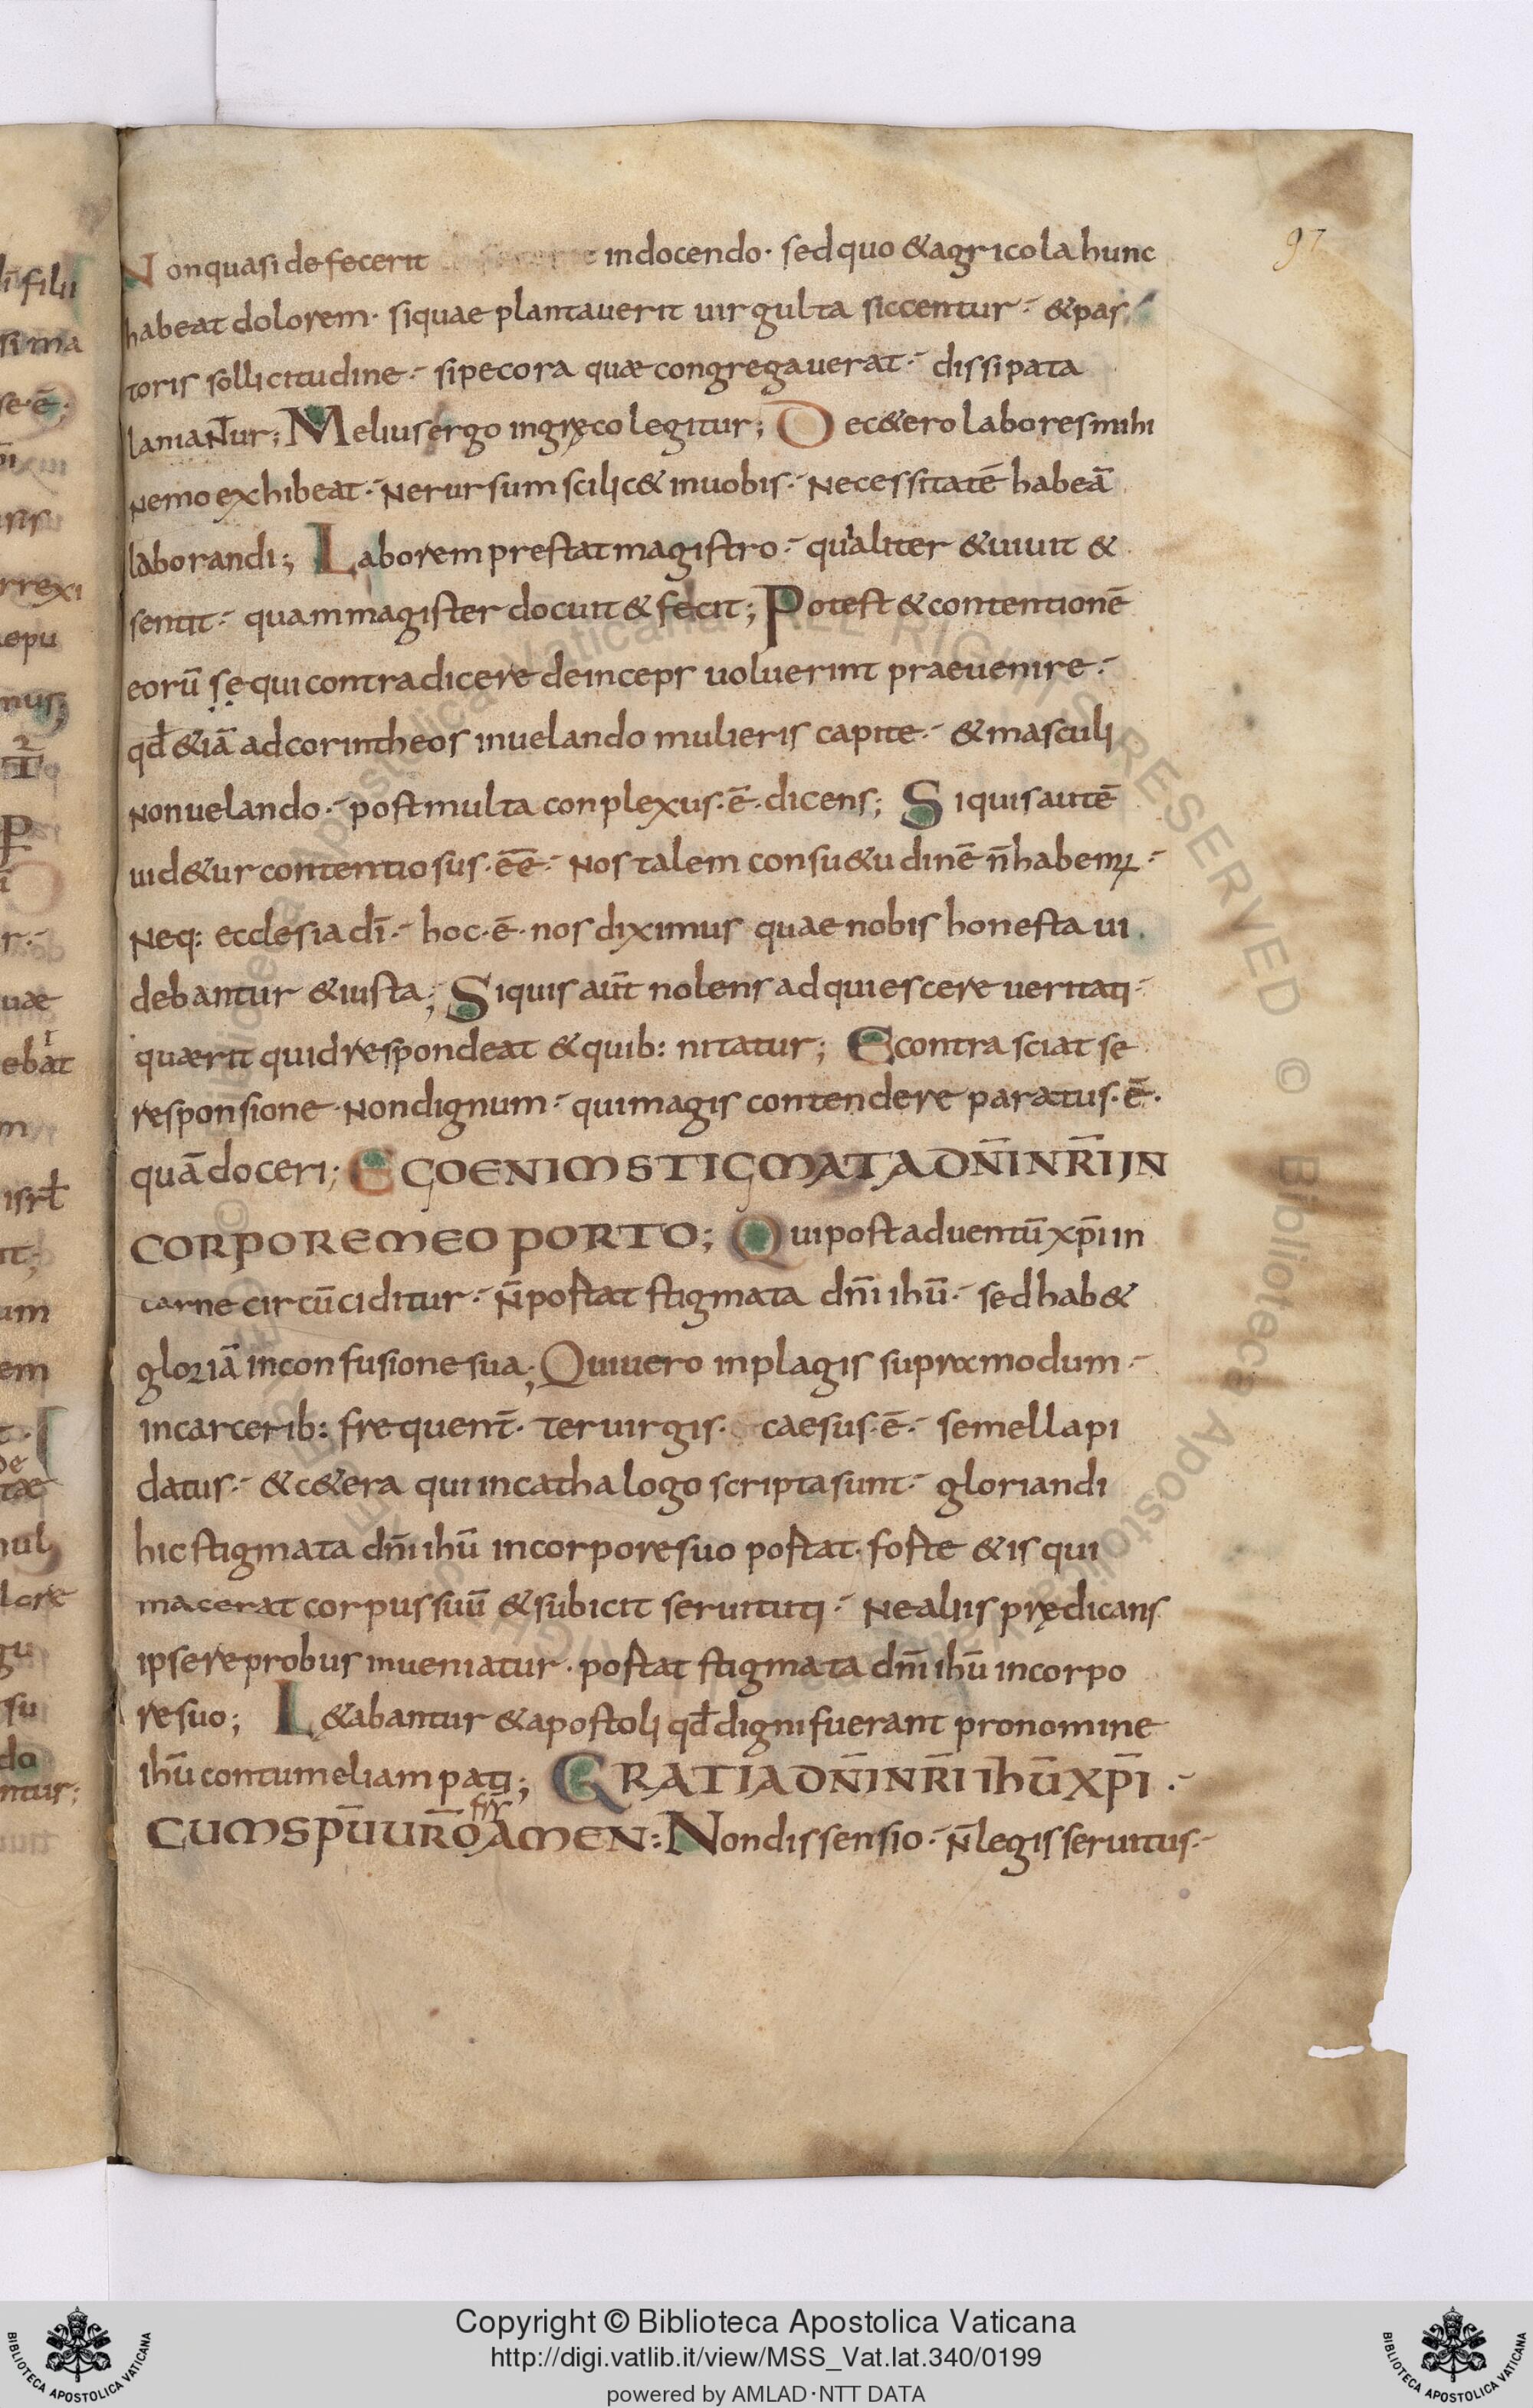 97
Non quasi defecerit in docendo· sed quo & agricola hunc
habeat dolorem· si quae plantauerit uirgulta siccentur·- & pas
toris sollicitudine·- si pecora quæ congregauerat·- dissipata
laniaNtur; Melius ergo in gręco legitur; De c&ero labores mihi
nemo exhibeat·- ne rursum scilic& in uobis·- necessitatē habeā
laborandi; Laborem prestat magistro·- qui aliter & uiuit &
sentit·- quam magister docuit & fecit; Potest & contentionē
eorū se qui contradicere deinceps uoluerint praeuenire·-
qđ &iā ad corintheos in uelando mulieris capite·- & masculi
non uelando·- post multa conplexus·ē·dicens; Si quis autē
uid&ur contentiosus·ēē·- nos talem consu&udinē n̄ habem;·-
neq: ecclesia dī·- hoc·ē·nos diximus quae nobis honesta ui
debantur & iusta; Si quis aūt nolens adquiescere ueritati·-
quærit quid respondeat & quib: nitatur; E contra sciat se
responsione·non dignum·- qui magis contendere paratus·ē·
quā doceri; EGO ENIM STIGMATA DN̄I NR̄I IN
CORPORE MEO PORTO; Qui post aduentū xp̄i in
carne circūciditur·- n̄ portat stigmata dn̄i ihū·- sed hab&
gloriā in confusione sua; Qui uero in plagis supra modum·-
in carcerib: frequent̄· ter uirgis· caesus·ē·- semel lapi
datus·- & c&era qui in cathalogo scripta sunt·- gloriandi
hic stigmata dn̄i ihū in corpore suo portat· forte & is qui
macerat corpus suū & subicit seruituti·- ne aliis prędicans
ipse reprobus inueniatur·portat stigmata dn̄i ihū in corpo
re suo; L&abantur & apostoli qđ digni fuerant pro nomine
ihū contumeliam pati; GRATIA DN̄I NR̄I IHŪ XP̄I·-
CUM SPŪ UR̄O fr̄r AMEN: Non dissensio·- n̄ legis seruitus·-
Copyright © Biblioteca Apostolica Vaticana
http://digi.vatlib.it/view/MSS_Vat.lat.340/0199
powered by AMLAD·NTT DATA
BIBLIOTECA APOSTOLICA VATICANA
BIBLIOTECA APOSTOLICA VATICANA